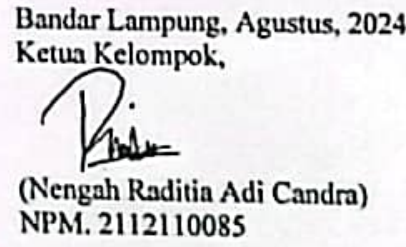 Bandar Lampung, Agustus, 2024
Ketua Kelompok,
(Nengah Raditia Adi Candra)
NPM. 2112110085